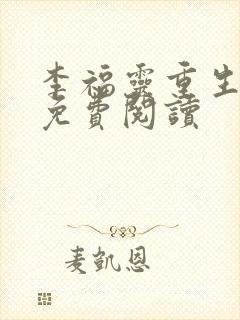 李福靈重生
免費閱讀
麦凱恩